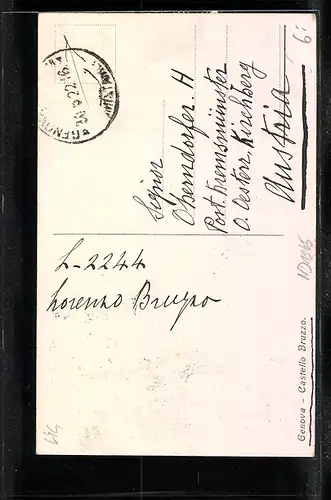 Signor
Oberndorfer H
Post Kremsmünster
O. Oesterr, Kirchberg
Austria
L-2244
Lorenzo Bruzzo
Genova - Castello Bruzzo.